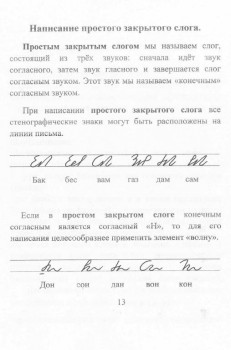 Написание простого закрытого слога.
Простым закрытым слогом мы называем слог,
состоящий из трёх звуков: сначала идёт звук
согласного, затем звук гласного и завершается слог
согласным звуком. Этот звук мы называем «конечным»
согласным звуком.
При написании простого закрытого слога все
стенографические знаки могут быть расположены на
линии письма.
Бак бес вам газ дам сам
Если в простом закрытом слоге конечным
согласным является согласный «Н», то для его
написания целесообразнее применить элемент «волну».
Дон сон дан вон кон
13